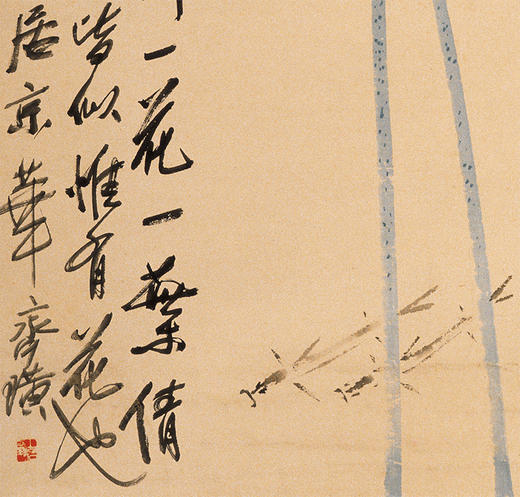 一花一葉倩
皆似惟有花也
居京華齊璜